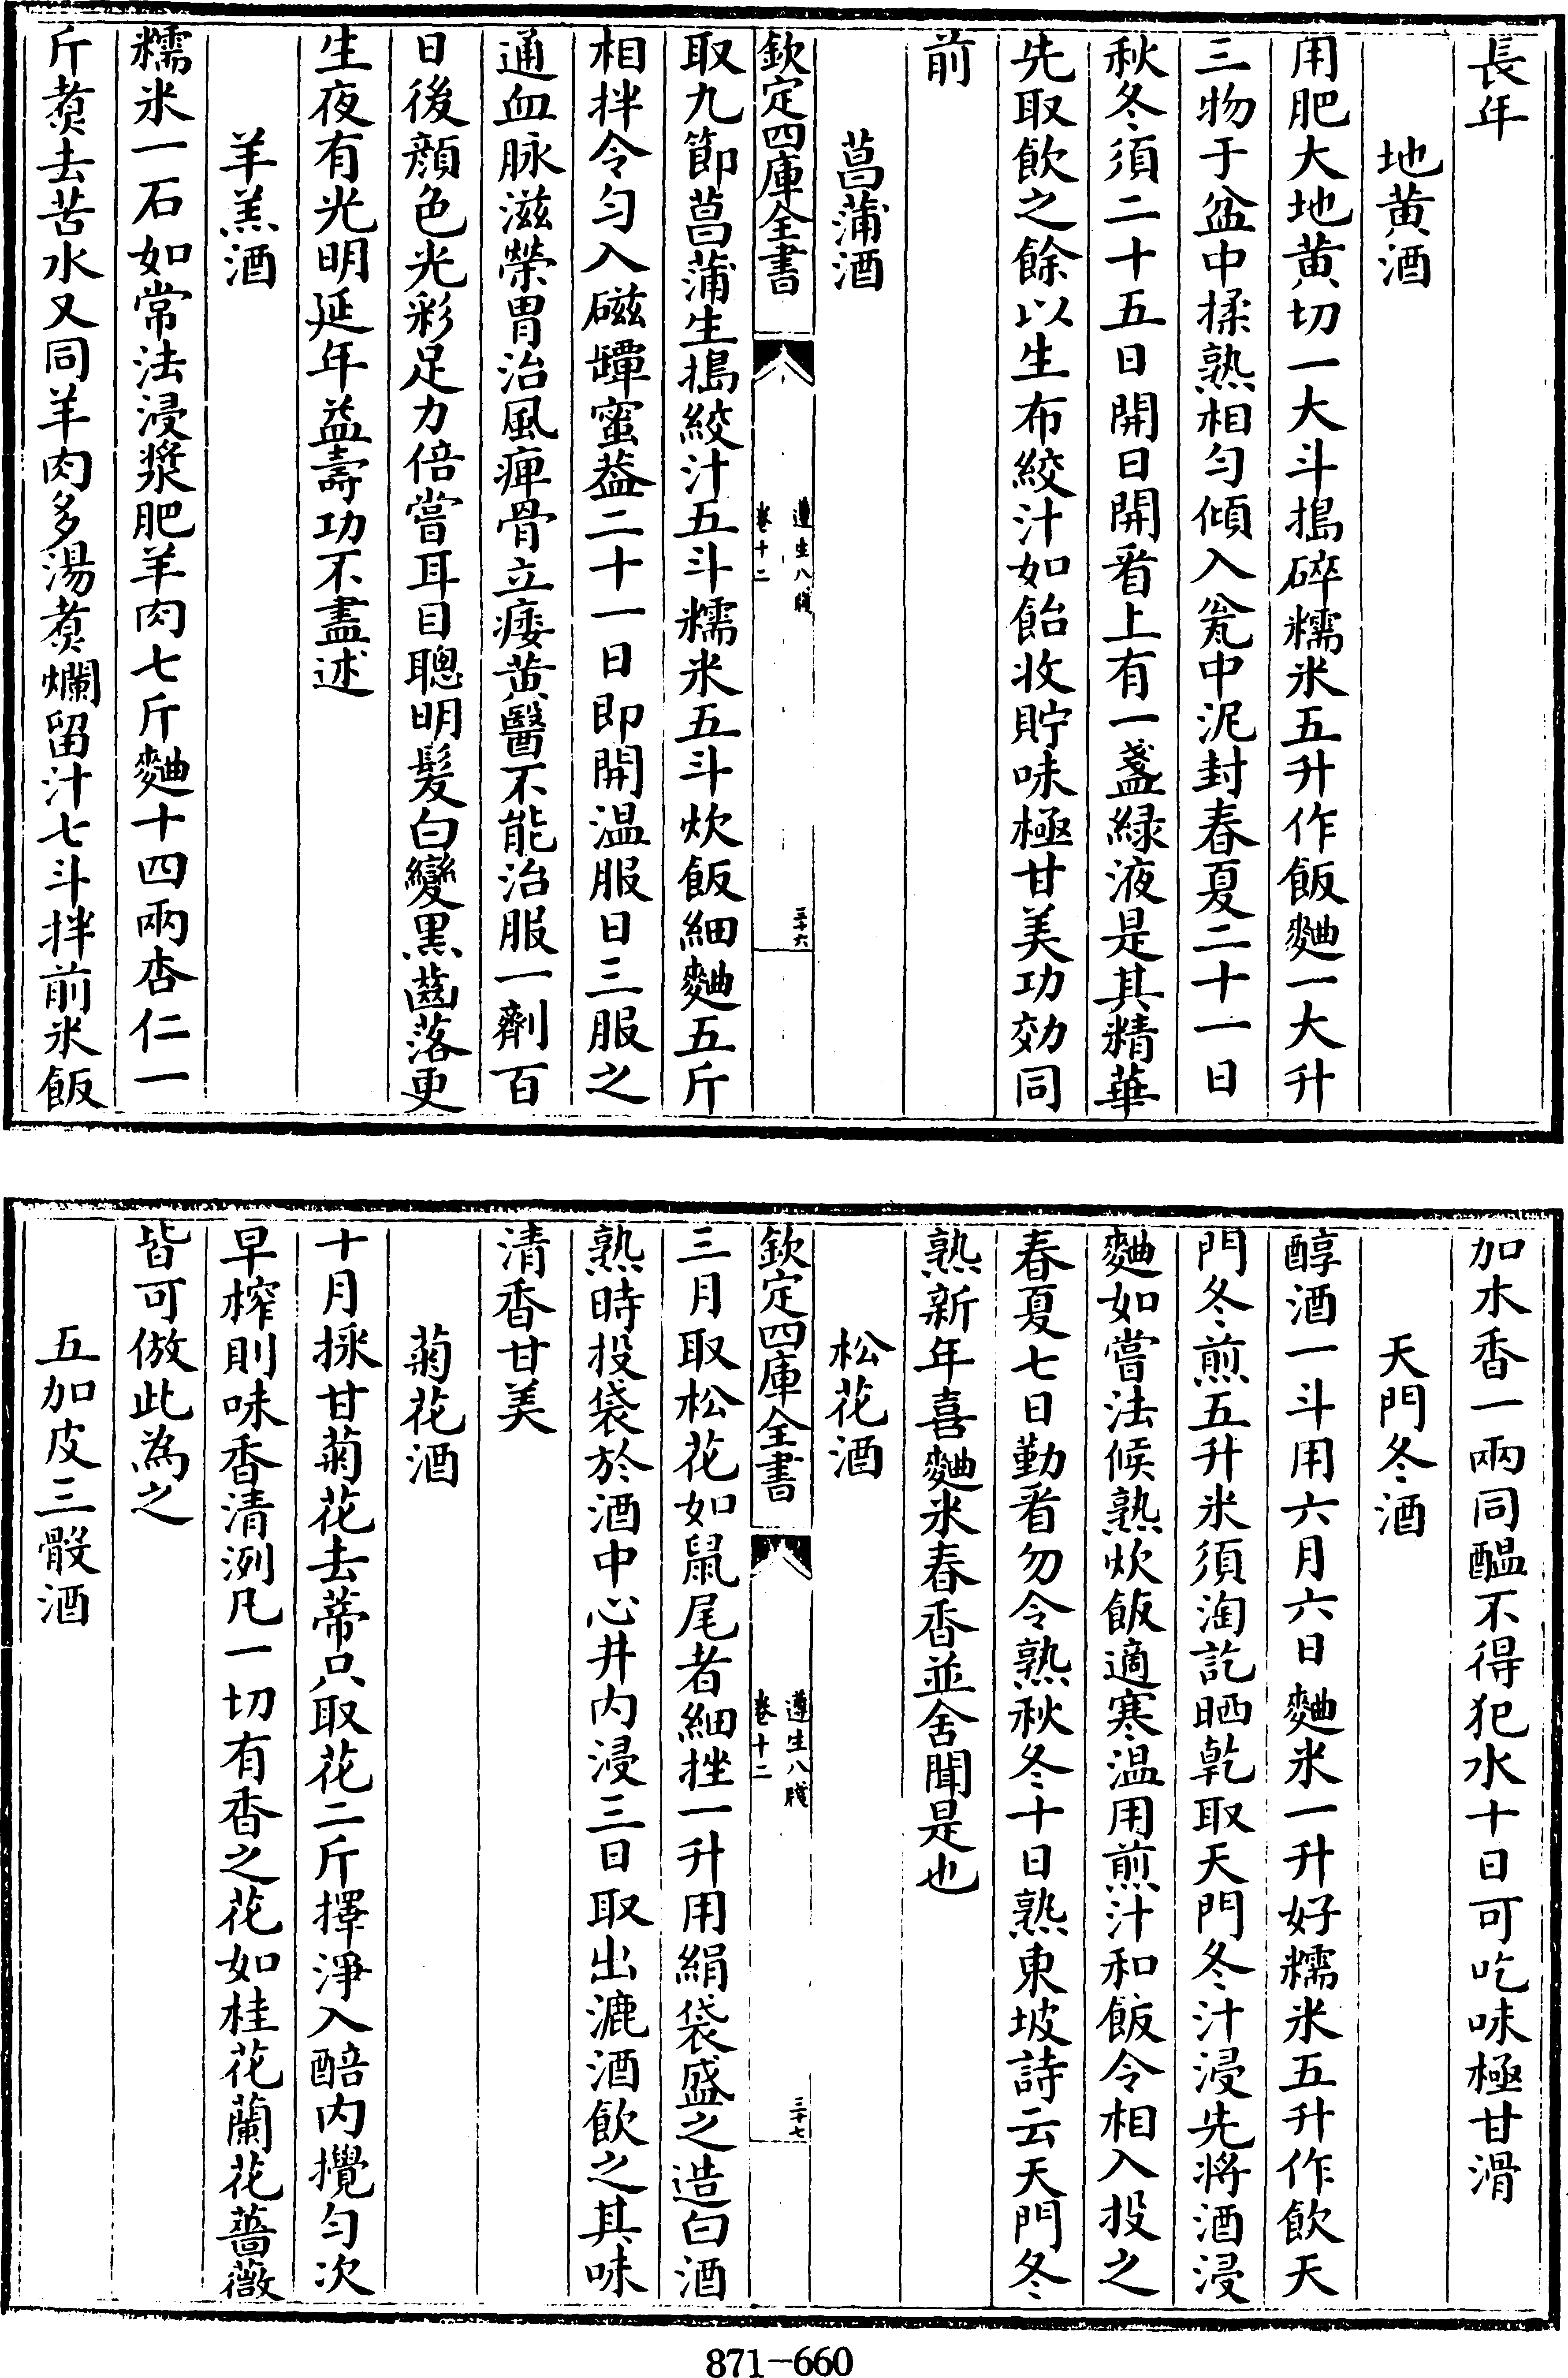 長年
地黄酒
用肥大地黄切一大斗搗碎糯米五升作飯麯一大升
三物于盆中揉熟相勻傾入瓮中泥封春夏二十一日
秋冬須二十五日開日開看上有一盞緑液是其精華
先取飲之餘以生布絞汁如飴收貯味極甘美功効同
前
菖蒲酒
欽定四庫全書
遵生八牋
卷十二
三十六
取九節菖蒲生搗絞汁五斗糯米五斗炊飯細麯五斤
相拌令勻入磁罈蜜葢二十一日即開温服日三服之
通血脉滋榮胃治風痺骨立痿黄醫不能治服一劑百
日後顔色光彩足力倍嘗耳目聰明髪白變黒齒落更
生夜有光明延年益壽功不盡述
羊羔酒
糯米一石如常法浸漿肥羊肉七斤麯十四兩杏仁一
斤煑去苦水又同羊肉多湯煑爛留汁七斗拌前米飯
加木香一兩同醖不得犯水十日可吃味極甘滑
天門冬酒
醇酒一斗用六月六日麯米一升好糯米五升作飲天
門冬煎五升米須淘訖晒乾取天門冬汁浸先將酒浸
麯如嘗法候熟炊飯適寒温用煎汁和飯令相入投之
春夏七日勤看勿令熟秋冬十日熟東坡詩云天門冬
熟新年喜麯米春香並舍聞是也
松花酒
欽定四庫全書
遵生八牋
卷十二
三十七
三月取松花如鼠尾者細挫一升用絹袋盛之造白酒
熟時投袋於酒中心井内浸三日取出漉酒飲之其味
清香甘美
菊花酒
十月採甘菊花去蒂只取花二斤擇淨入醅内攪勻次
早榨則味香清洌凡一切有香之花如桂花蘭花薔薇
皆可倣此為之
五加皮三骰酒
871-660